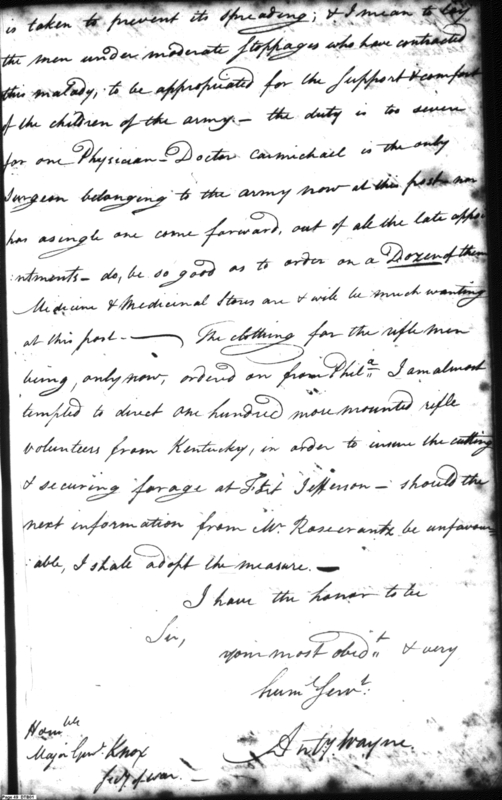 is taken to prevent its spreading; & I mean to lay
the men under moderate stoppages who have contracted
this malady, to be appropriated for the support & comfort
of the children of the army — the duty is too severe
for one Physician — Doctor Carmichael is the only
Surgeon belonging to the army now at this post — nor
has a single one come forward, out of all the late appoi
ntments — do, be so good as to order on a Dozen of them
Medicine & Medicinal Stores are & will be much wanting
at this post. — The clothing for the rifle men
being, only now, ordered on from Phila I am almost
tempted to direct one hundred more mounted rifle
volunteers from Kentucky, in order to insure the cutting
& securing forage at Fort Jefferson — should the
next information from Mr. Rosecrantz be unfavour=
able, I shall adopt the measure. —
I have the honor to be
Sir,
your most obedt & very
huml Servt.
Anty Wayne.
Honble
Major Genl. Knox
Secy of war —